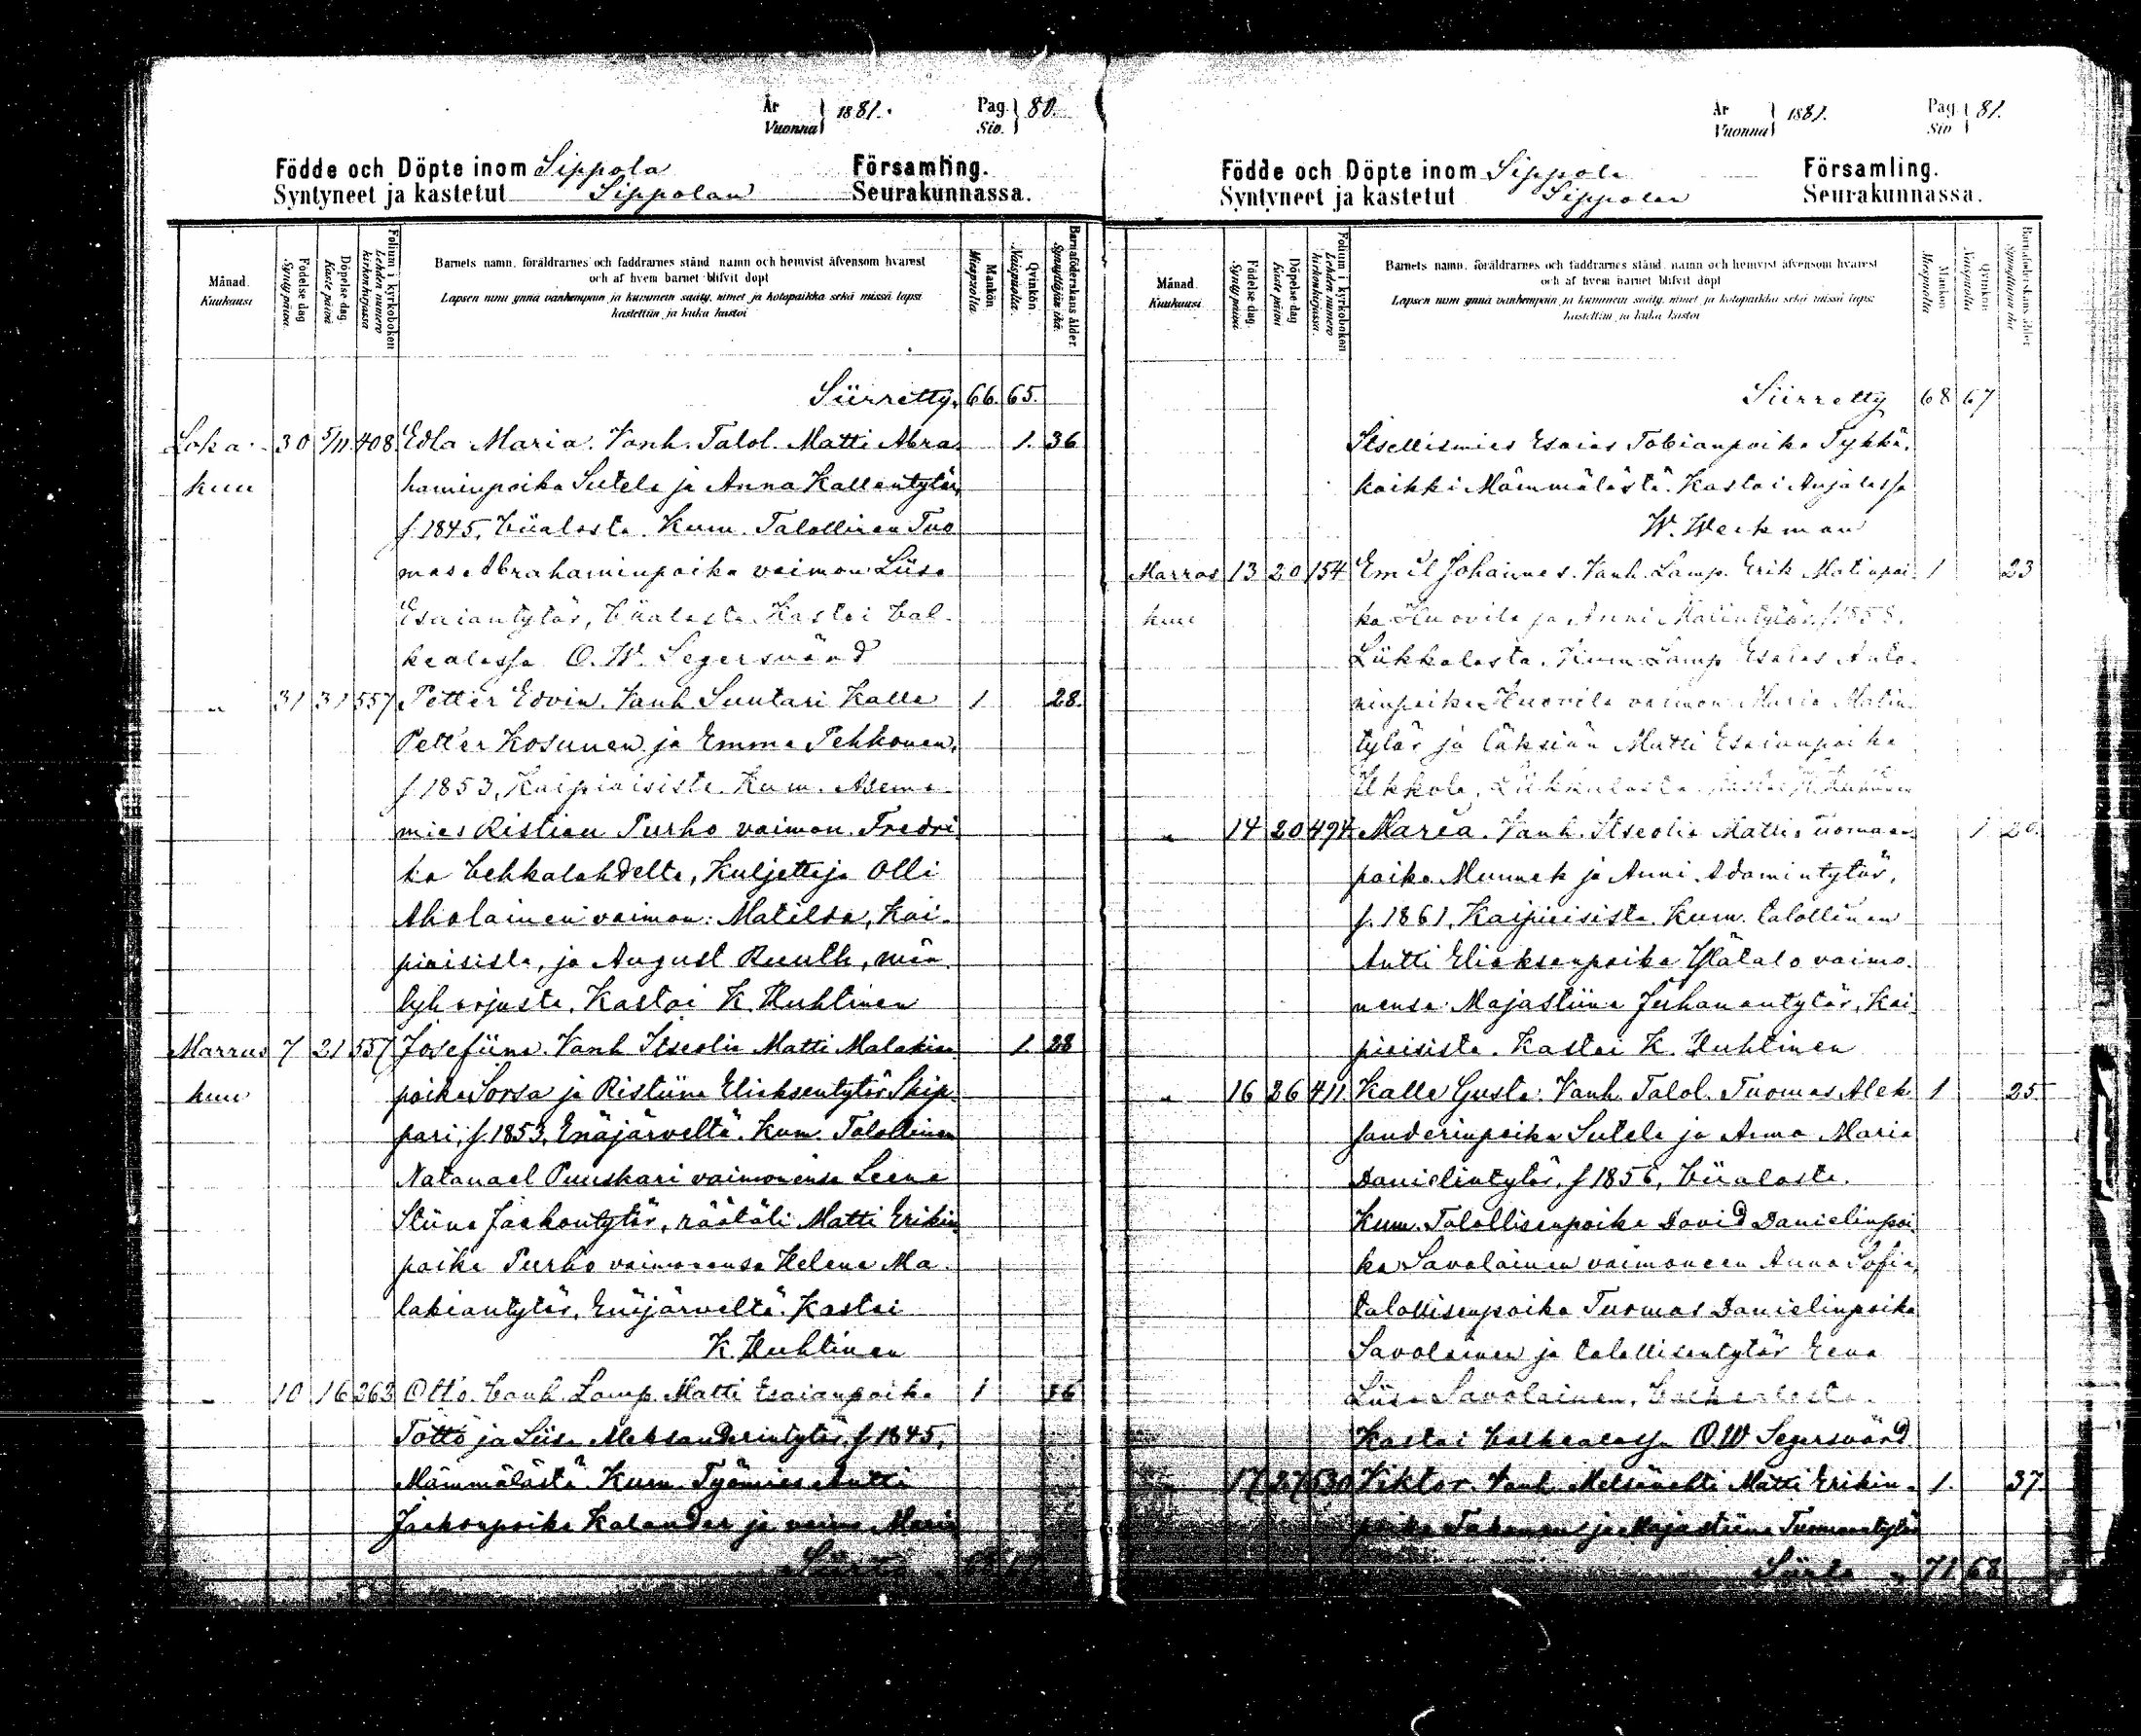 År Vuonna 1881. Pag. Siv. 80.
Födde och Döpte inom Sippola Församling.
Syntyneet ja kastetut Sippolan Seurakunnassa.
Månad. Kuukausi
Födelse dag. Synty päivä.
Döpelse dag. Kaste päivä
Folium i kyrkoboken Lehden numero kirkonkirjassa
Barnets namn, föräldrarnes och faddrarnes stånd, namn och hemvist äfvensom hvarest
och af hvem barnet blifvit döpt
Lapsen nimi ynnä vanhempain ja kummein sääty, nimet ja kotopaikka sekä missä lapsi
kastettiin ja kuka kastoi
Mankön. Miespuolta.
Qvinkön. Naispuolta.
Barnaföderskans ålder. Synnyttäjän ikä.
Siirretty. 66. 65.
Loka- 30 5/11. 408. Edla Maria. Vanh. Talol. Matti Abra- 1. 36
kuu haminpoika Sutela ja Anna Kallentytär,
f 1845, Wiialasta. Kum. Talollinen Tuo
mas Abrahaminpoika vaimon Liisa
Esaiantytär, Wiialasta. Kastoi Val-
kealassa O. W. Segersvärd
" 31 31 557 Petter Edvin. Vanh Suutari Kalle 1 28.
Petter Kosunen ja Emma Pehkonen,
f 1853, Kaipiaisista. Kum. Asema-
mies Ristian Purho vaimon Fredri
ka Vehkalahdelta, Kuljettaja Olli
Aholainen vaimon: Matilda, Kai-
piaisista, ja August Ruuth,
Kastoi K. Huhtinen
Marras 7 21 557 Josefiina. Vanh Itseolia Matti Malakian 1. 28
kuu poika Sorsa ja Ristiina Eliaksentytär Skip-
pari, f. 1853, Enäjärveltä. Kum. Talollinen
Natanael Puuskari vaimonensa Leena
Stiina Jaakontytär, räätäli Matti Erikin
poika Purho vaimonensa Helena Ma-
lakiantytär, Enäjärveltä. Kastoi
K. Huhtinen
" 10 16 363 Otto. Vanh. Lamp. Matti Esaianpoika 1 36
Töttö ja Liisa Aleksanderintytär, f 1845,
Mämmälästä. Kum. Työmies Antti
Jaakonpoika Kalander ja vaimo Maria
Siirto 68 67
År Vuonna 1881. Pag. Siv. 81.
Födde och Döpte inom Sippola Församling.
Syntyneet ja kastetut Sippolan Seurakunnassa.
Månad. Kuukausi.
Födelse dag. Synty päivä.
Döpelse dag Kaste päivä
Folium i kyrkoboken. Lehden numero kirkonkirjassa.
Barnets namn, föräldrarnes och faddrarnes stånd, namn och hemvist äfvensom hvarest
och af hvem barnet blifvit döpt
Lapsen nimi ynnä vanhempain ja kummein sääty, nimet ja kotopaikka sekä missä lapsi
kastettiin ja kuka kastoi
Mankön Miespuolta
Qvinkön Naispuolta
Barnaföderskans ålder Synnyttäjän ikä
Siirretty 68 67
Itsellismies Esaias Tobianpoika Tykkä,
kaikki Mämmälästä. Kastoi Anjalassa
W. Weckman
Marras 13 20 154 Emil Johannes. Vanh. Lamp. Erik Matinpoi- 1 23
kuu ka Huovila ja Anni Matintytär, f 1858.
Liikkalasta. Kum. Lamp Esaias Anto-
ninpoika Huovila vaimon Maria Matin-
tytär ja läksiän Matti Esaianpoika
Ukkola, Liikkalasta. Kastoi K. Huhtinen
" 14 20 494 Maria. Vanh. Itseolia Matti Tuomaan 1 20.
poika Munnek ja Anni Adamintytär,
f. 1861, Kaipiaisista. Kum. talollinen
Antti Eliaksenpoika Ylätalo vaimo-
nensa Majastiina Juhanantytär, Kai
piaisista. Kastoi K. Huhtinen
" 16 26 411 Kalle Gusta. Vanh. Talol. Tuomas Alek 1 25
sanderinpoika Sutela ja Anna Maria
Danielintytär, f 1856, Wiialasta.
Kum. Talollisenpoika David Danielinpoi
ka Savolainen vaimoneen Anna Sofia,
talollisenpoika Tuomas Danielinpoika
Savolainen ja talollisentytär Eeva
Liisa Savolainen, Valkealasta.
Kastoi Valkealassa O W Segersvärd
" 17 27 530 Viktor. Vanh. Metsänvahti Matti Erikin- 1. 37.
poika Tahanen ja Majastiina Tuomaantytär
Siirto " 71 68